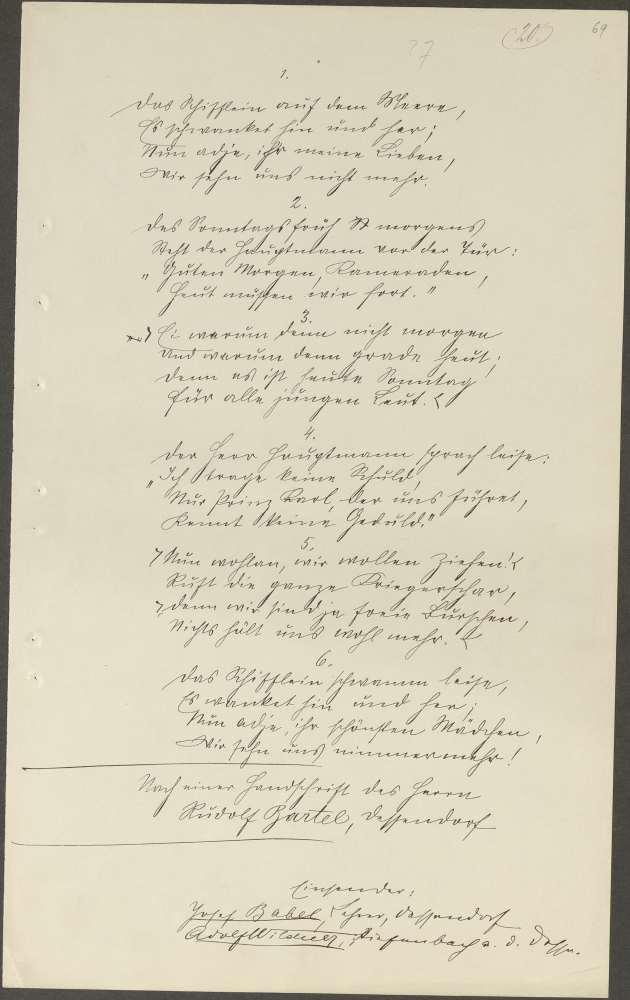 27
(20.)
69
1.
Das Schifflein auf dem Meere,
Es schwanket hin und her;
Nun adje, ihr meine Lieben,
Wir sehn uns nicht mehr.
2.
Des Sonntags früh morgens
Steht der Hauptmann vor der Tür:
"Guten Morgen, Kameraden,
Heut müssen wir fort."
3.
Ei warum denn nicht morgen
Und warum denn grade heut;
Denn es ist heute Sonntag
Für alle jungen Leut.
4.
Der Herr Hauptmann sprach leise:
"Ich trage keine Schuld,
Nur Prinz Karl, der uns führet,
Kennt keine Geduld."
5.
Nun wohlan, wir wollen ziehen!
Ruft die ganze Kriegerschar,
Denn wir sind ja freie Burschen,
Nichts hält uns wohl mehr.
6.
Das Schifflein schwamm leise,
Es wanket hin und her;
Nun adje, ihr schönsten Mädchen,
Wir sehn uns nimmermehr!
Nach einer Handschrift des Herrn
Rudolf Bartel, Dessendorf
Einsender:
Josef Babel, Lehrer, Dessendorf
Adolf Wildner, Tiefenbach a. d. Desse.